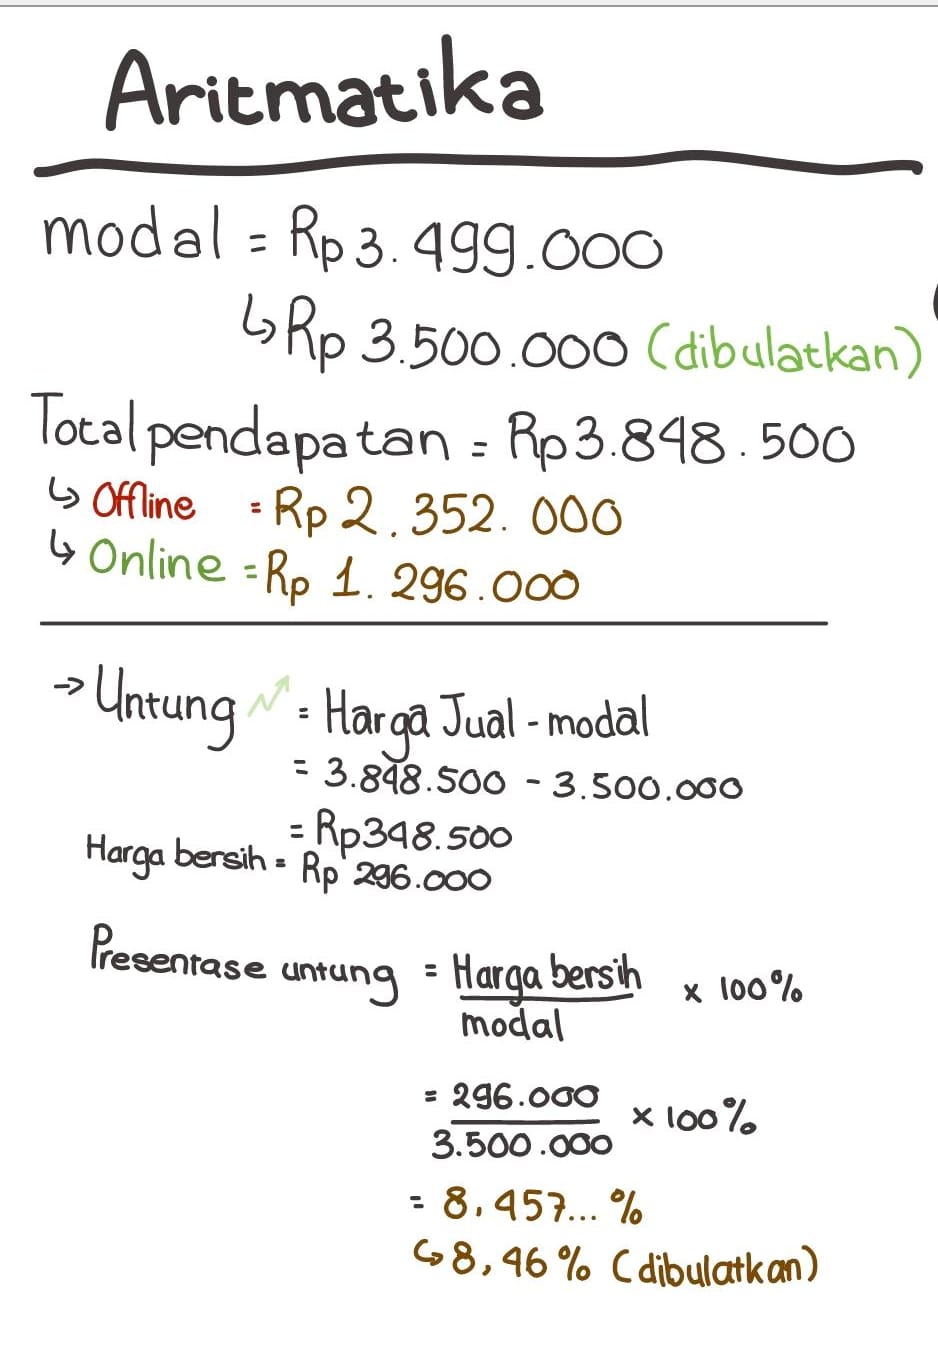 Aritmatika
modal = Rp 3.499.000
↳ Rp 3.500.000 (dibulatkan)
Total pendapatan = Rp 3.848.500
↳ Offline = Rp 2.352.000
↳ Online = Rp 1.296.000
→ Untung = Harga Jual - modal
= 3.848.500 - 3.500.000
= Rp 348.500
Harga bersih = Rp 296.000
Presentase untung = Harga bersih / modal x 100%
= 296.000 / 3.500.000 x 100%
= 8,457... %
↳ 8,46 % (dibulatkan)